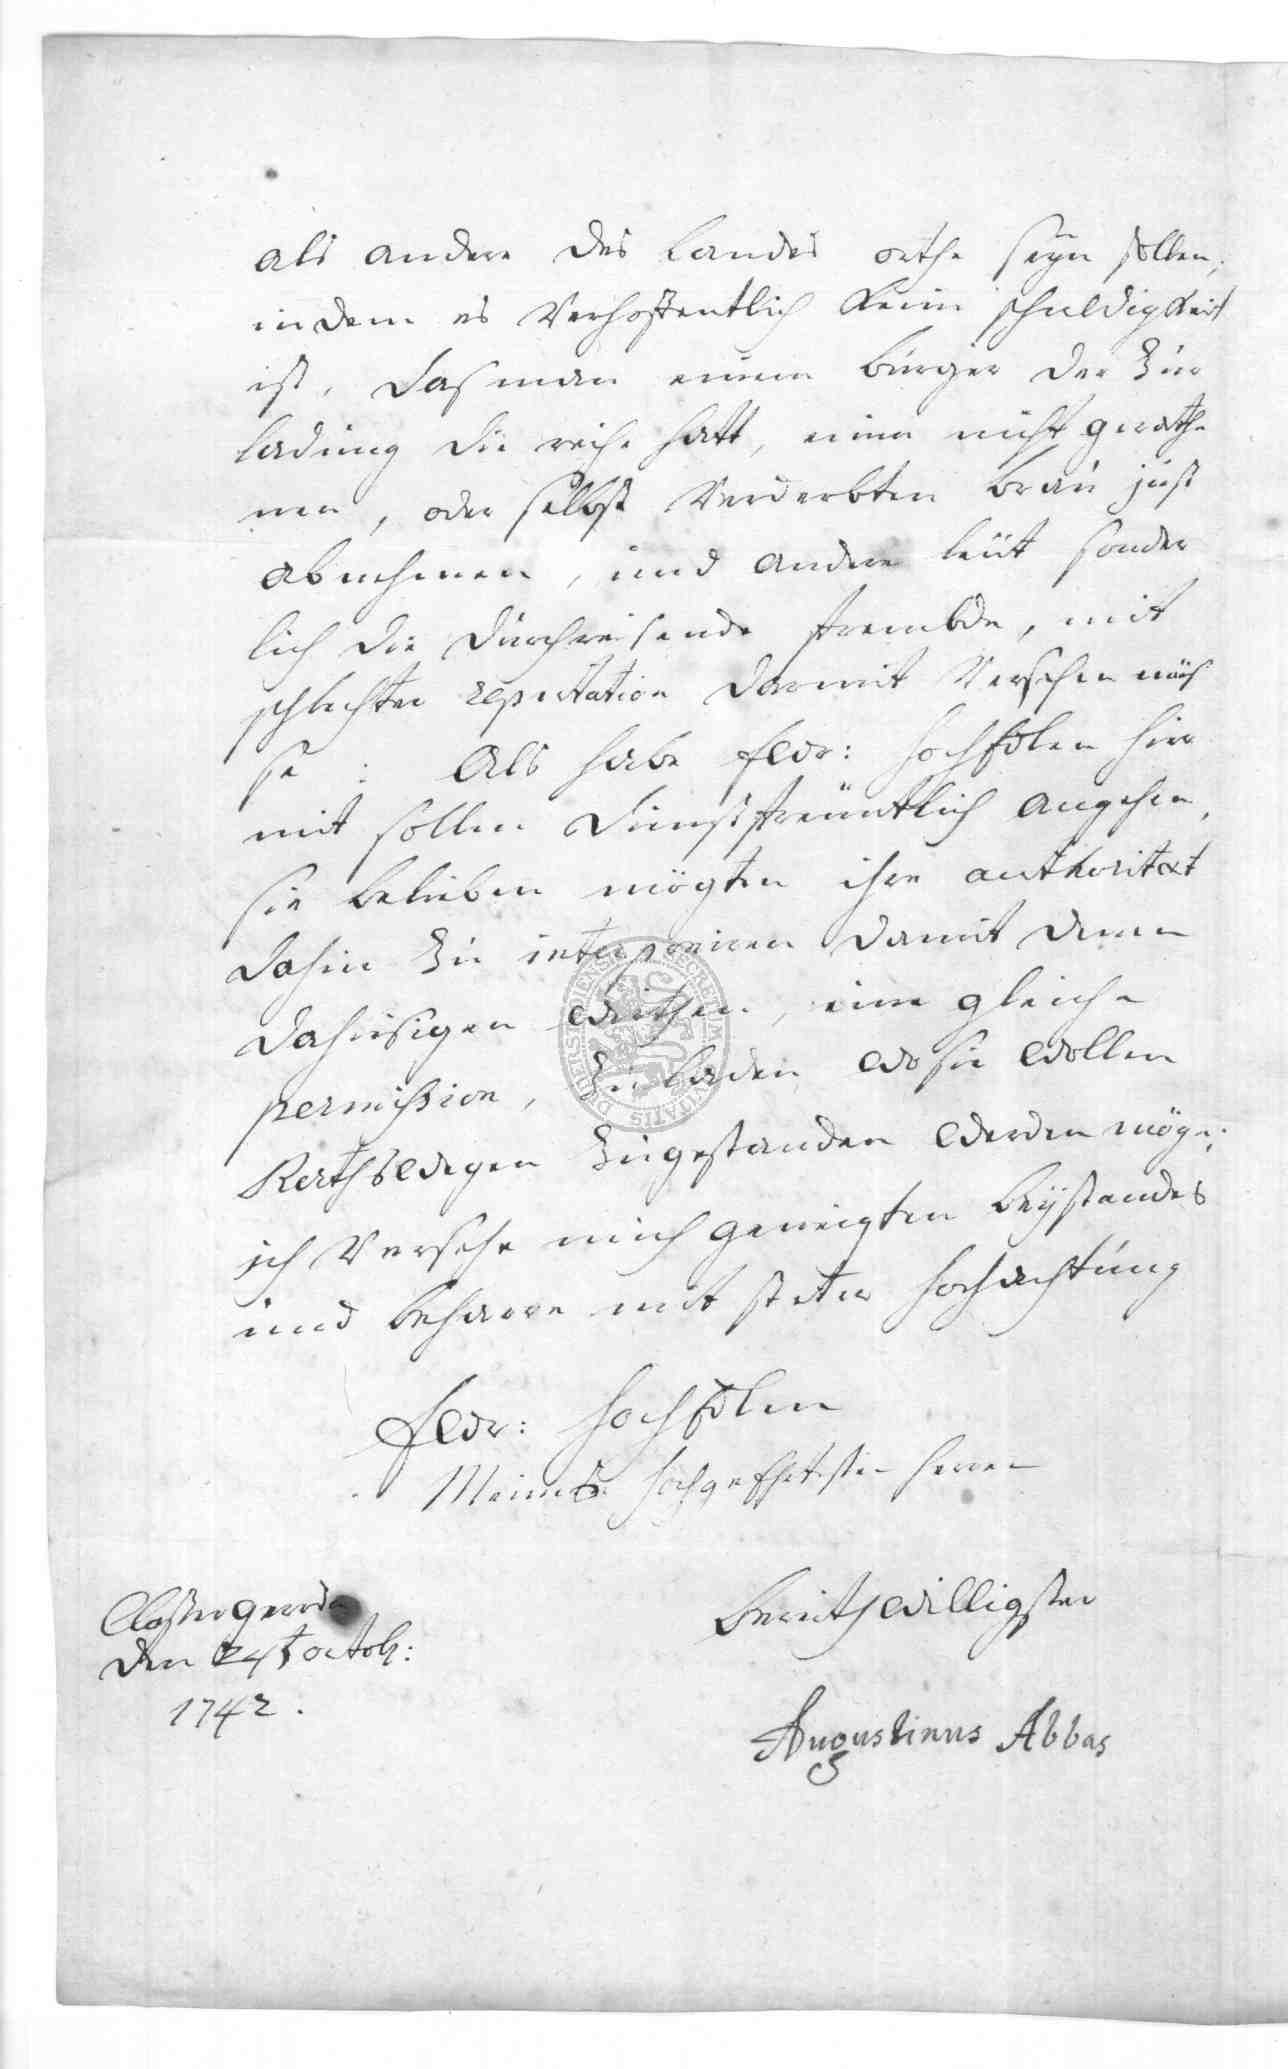 als andere des landes orthe seyn sollen,
indem es Verhoffentlich keine schuldigkeit
ist, das man einem bürger der Zur
ladung die reihe hatt, einen nicht gerathe
nen, oder selbst Verderbten bräu just
abnehmen, und andere leüt sonder
lich die durchreisende frembde, mit
schlechter reputation darmit Versehen müs
se : Als habe Ewr: hochEdlen hier
mit sollen dienstfreüntlich angehen,
sie belieben mögten ihre authoritæt
dahin Zu interponiren damit denen
dahiesigen wirthen, eine gleiche
permission, Zu laden wo sie wollen
Rathswegen Zugestanden werden möge;
ich Versehe mich geneigten beÿstandes
und beharre mit steter hochachtung
Ewr: hochEdlen
Meines hochgeEhrtesten herren
bereithwilligster
Closter gerode
den octob:
1742.
Augustinus Abbas